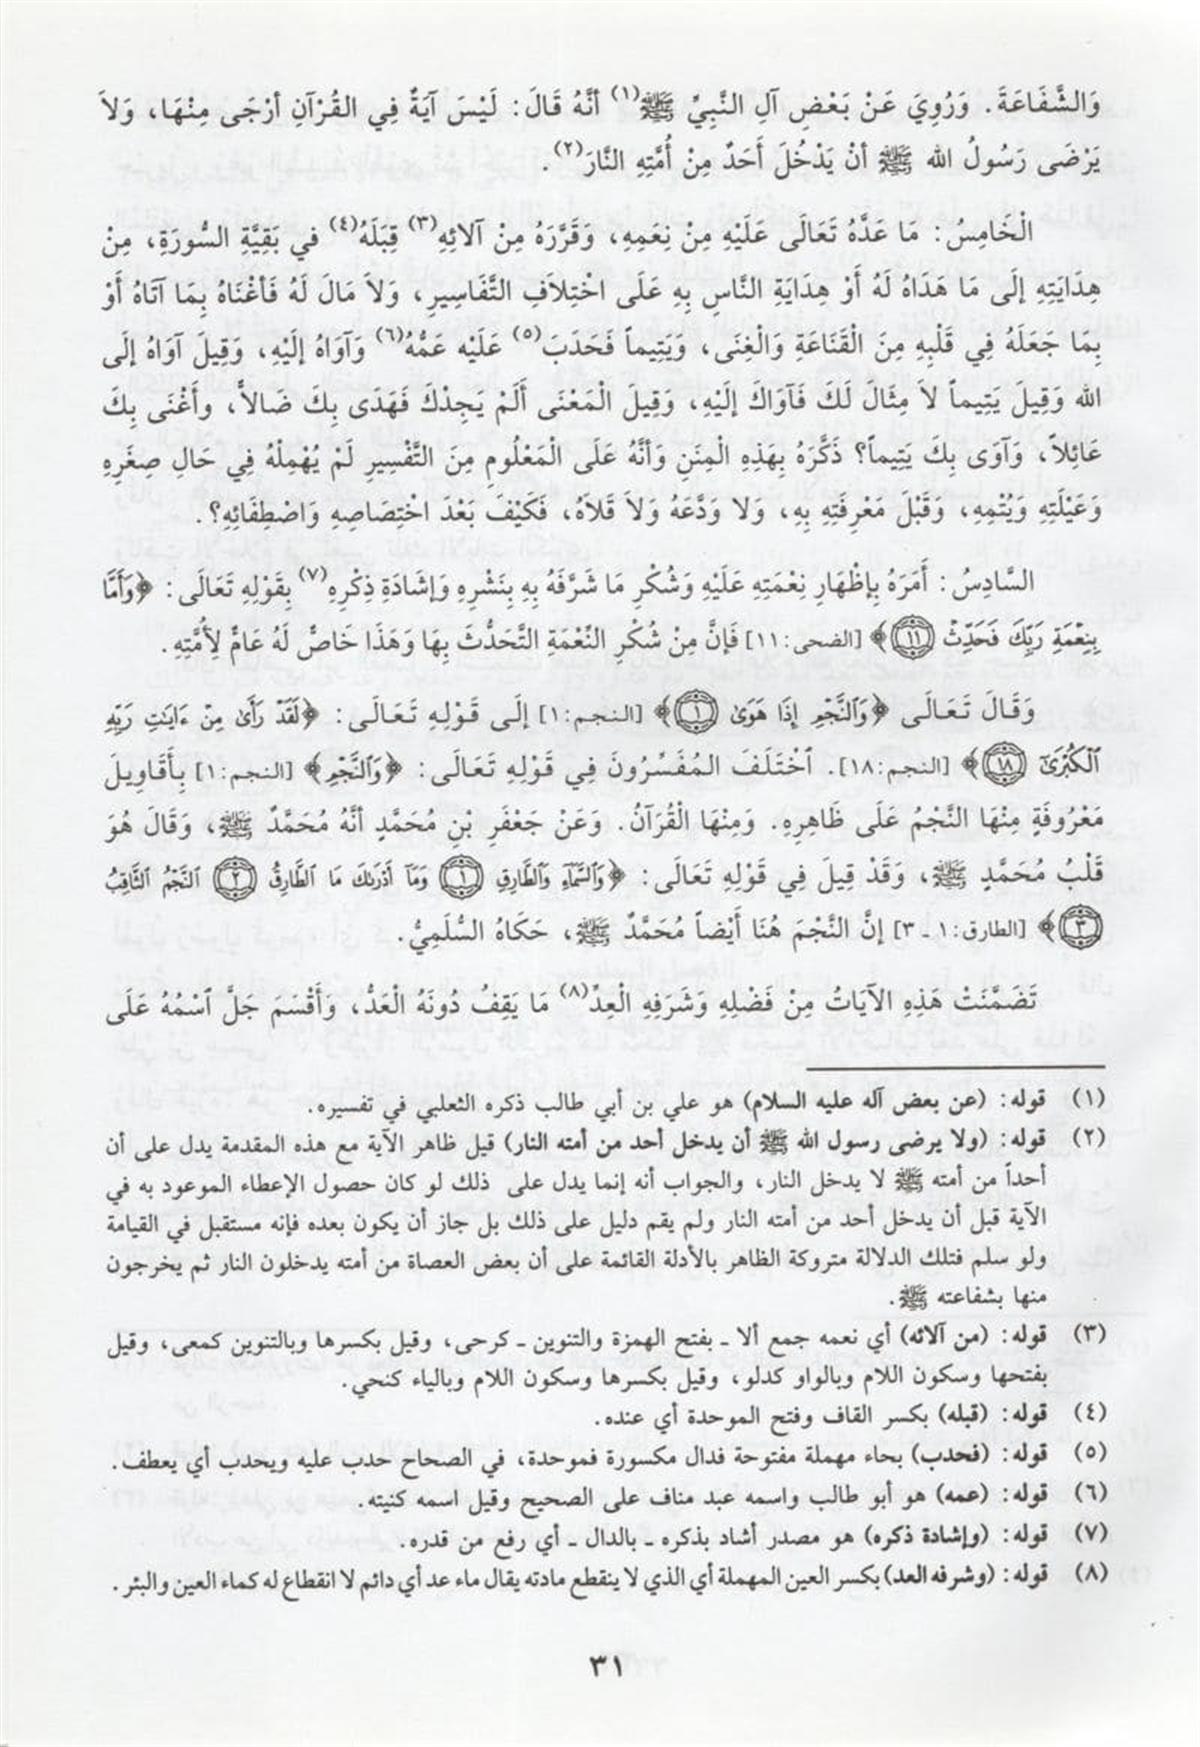 وَالشَّفَاعَةَ. وَرُوِيَ عَنْ بَعْضِ آلِ النَّبِيِّ ﷺ(١) أنَّهُ قَالَ: لَيْسَ آيَةٌ فِي القُرْآنِ أرْجَى مِنْهَا، وَلاَ
يَرْضَى رَسُولُ الله ﷺ أنْ يَدْخُلَ أَحَدٌ مِنْ أُمَّتِهِ النَّارَ(٢).
الْخَامِسُ: مَا عَدَّهُ تَعَالَى عَلَيْهِ مِنْ نِعَمِهِ، وَقَرَّرَهُ مِنْ آلائِهِ(٣) قِبَلَهُ(٤) في بَقِيَّةِ السُّورَةِ، مِنْ
هِدَايَتِهِ إلَى مَا هَدَاهُ لَهُ أوْ هِدَايَةِ النَّاسِ بِهِ عَلَى اخْتِلاَفِ التَّفَاسِيرِ، وَلاَ مَالَ لَهُ فَأغْنَاهُ بِمَا آتَاهُ أوْ
بِمَا جَعَلَهُ فِي قَلْبِهِ مِنَ القَنَاعَةِ وَالْغِنَى، وَيَتِيماً فَحَدَبَ(٥) عَلَيْه عَمُّهُ(٦) وَآوَاهُ إلَيْهِ، وَقِيلَ آوَاهُ إلَى
الله وَقِيلَ يَتِيماً لاَ مِثَالَ لَكَ فَآوَاكَ إلَيْهِ، وَقِيلَ الْمَعْنَى ألَمْ يَجِدْكَ فَهَدَى بِكَ ضَالاًّ، وأغْنَى بِكَ
عَائِلاً، وَآوَى بِكَ يَتِيماً؟ ذَكَّرَهُ بِهَذِهِ الْمِنَنِ وَأنَّهُ عَلَى الْمَعْلُومِ مِنَ التَّفْسِيرِ لَمْ يُهْمِلْهُ فِي حَالِ صِغَرِهِ
وَعَيْلَتِهِ وَيُتْمِهِ، وَقَبْلَ مَعْرِفَتِهِ بِهِ، وَلا وَدَّعَهُ وَلاَ قَلاَهُ، فَكَيْفَ بَعْدَ اخْتِصَاصِهِ وَاصْطِفَائِهِ؟.
السَّادِسُ: أَمَرَهُ بِإظْهَارِ نِعْمَتِهِ عَلَيْهِ وَشُكْرِ مَا شَرَّفَهُ بِهِ بِنَشْرِهِ وَإشَادَةِ ذِكْرِهِ(٧) بِقَوْلِهِ تَعَالَى: ﴿وَأَمَّا
بِنِعْمَةِ رَبِّكَ فَحَدِّثْ ﴿١١﴾﴾ [الضحى: ١١] فَإنَّ مِنْ شُكْرِ النِّعْمَةِ التَّحَدُّثَ بِهَا وَهَذَا خَاصٌّ لَهُ عَامٌّ لِأُمَّتِهِ.
وَقَالَ تَعَالَى ﴿وَٱلنَّجْمِ إِذَا هَوَىٰ ﴿١﴾﴾ [النجم: ١] إلَى قَوْلِهِ تَعَالَى: ﴿لَقَدْ رَأَىٰ مِنْ ءَايَٰتِ رَبِّهِ
ٱلْكُبْرَىٰٓ ﴿١٨﴾﴾ [النجم: ١٨]. اخْتَلَفَ المُفَسِّرُونَ فِي قَوْلِهِ تَعَالَى: ﴿وَٱلنَّجْمِ﴾ [النجم: ١] بِأَقَاوِيلَ
مَعْرُوفَةٍ مِنْهَا النَّجْمُ عَلَى ظَاهِرِهِ. وَمِنْهَا الْقُرْآنُ. وَعَنْ جَعْفَرِ بْنِ مُحَمَّدٍ أنَّهُ مُحَمَّدٌ ﷺ، وَقَالَ هُوَ
قَلْبُ مُحَمَّدٍ ﷺ، وَقَدْ قِيلَ فِي قَوْلِهِ تَعَالَى: ﴿وَٱلسَّمَآءِ وَٱلطَّارِقِ ﴿١﴾ وَمَآ أَدْرَىٰكَ مَا ٱلطَّارِقُ ﴿٢﴾ ٱلنَّجْمُ ٱلثَّاقِبُ
﴿٣﴾﴾ [الطارق: ١ ـ ٣] إنَّ النَّجْمَ هُنَا أيْضاً مُحَمَّدٌ ﷺ، حَكَاهُ السُّلَمِيُّ.
تَضَمَّنَتْ هَذِهِ الآيَاتُ مِنْ فَضْلِهِ وَشَرَفِهِ الْعِدِّ(٨) مَا يَقِفُ دُونَهُ الْعَدُّ، وَأَقْسَمَ جَلَّ ٱسْمُهُ عَلَى
(١) قوله: (عن بعض آله عليه السلام) هو علي بن أبي طالب ذكره الثعلبي في تفسيره.
(٢) قوله: (ولا يرضى رسول الله ﷺ أن يدخل أحد من أمته النار) قيل ظاهر الآية مع هذه المقدمة يدل على أن
أحداً من أمته ﷺ لا يدخل النار، والجواب أنه إنما يدل على ذلك لو كان حصول الإعطاء الموعود به في
الآية قبل أن يدخل أحد من أمته النار ولم يقم دليل على ذلك بل جاز أن يكون بعده فإنه مستقبل في القيامة
ولو سلم فتلك الدلالة متروكة الظاهر بالأدلة القائمة على أن بعض العصاة من أمته يدخلون النار ثم يخرجون
منها بشفاعته ﷺ.
(٣) قوله: (من آلائه) أي نعمه جمع ألا ـ بفتح الهمزة والتنوين ـ كرحى، وقيل بكسرها وبالتنوين كمعى، وقيل
بفتحها وسكون اللام وبالواو كدلو، وقيل بكسرها وسكون اللام وبالياء كنحي.
(٤) قوله: (قبله) بكسر القاف وفتح الموحدة أي عنده.
(٥) قوله: (فحدب) بحاء مهملة مفتوحة فدال مكسورة فموحدة، في الصحاح حدب عليه ويحدب أي يعطف.
(٦) قوله: (عمه) هو أبو طالب واسمه عبد مناف على الصحيح وقيل اسمه كنيته.
(٧) قوله: (وإشادة ذكره) هو مصدر أشاد بذكره ـ بالدال ـ أي رفع من قدره.
(٨) قوله: (وشرفه العد) بكسر العين المهملة أي الذي لا ينقطع مادته يقال ماء عد أي دائم لا انقطاع له كماء العين والبئر.
٣١